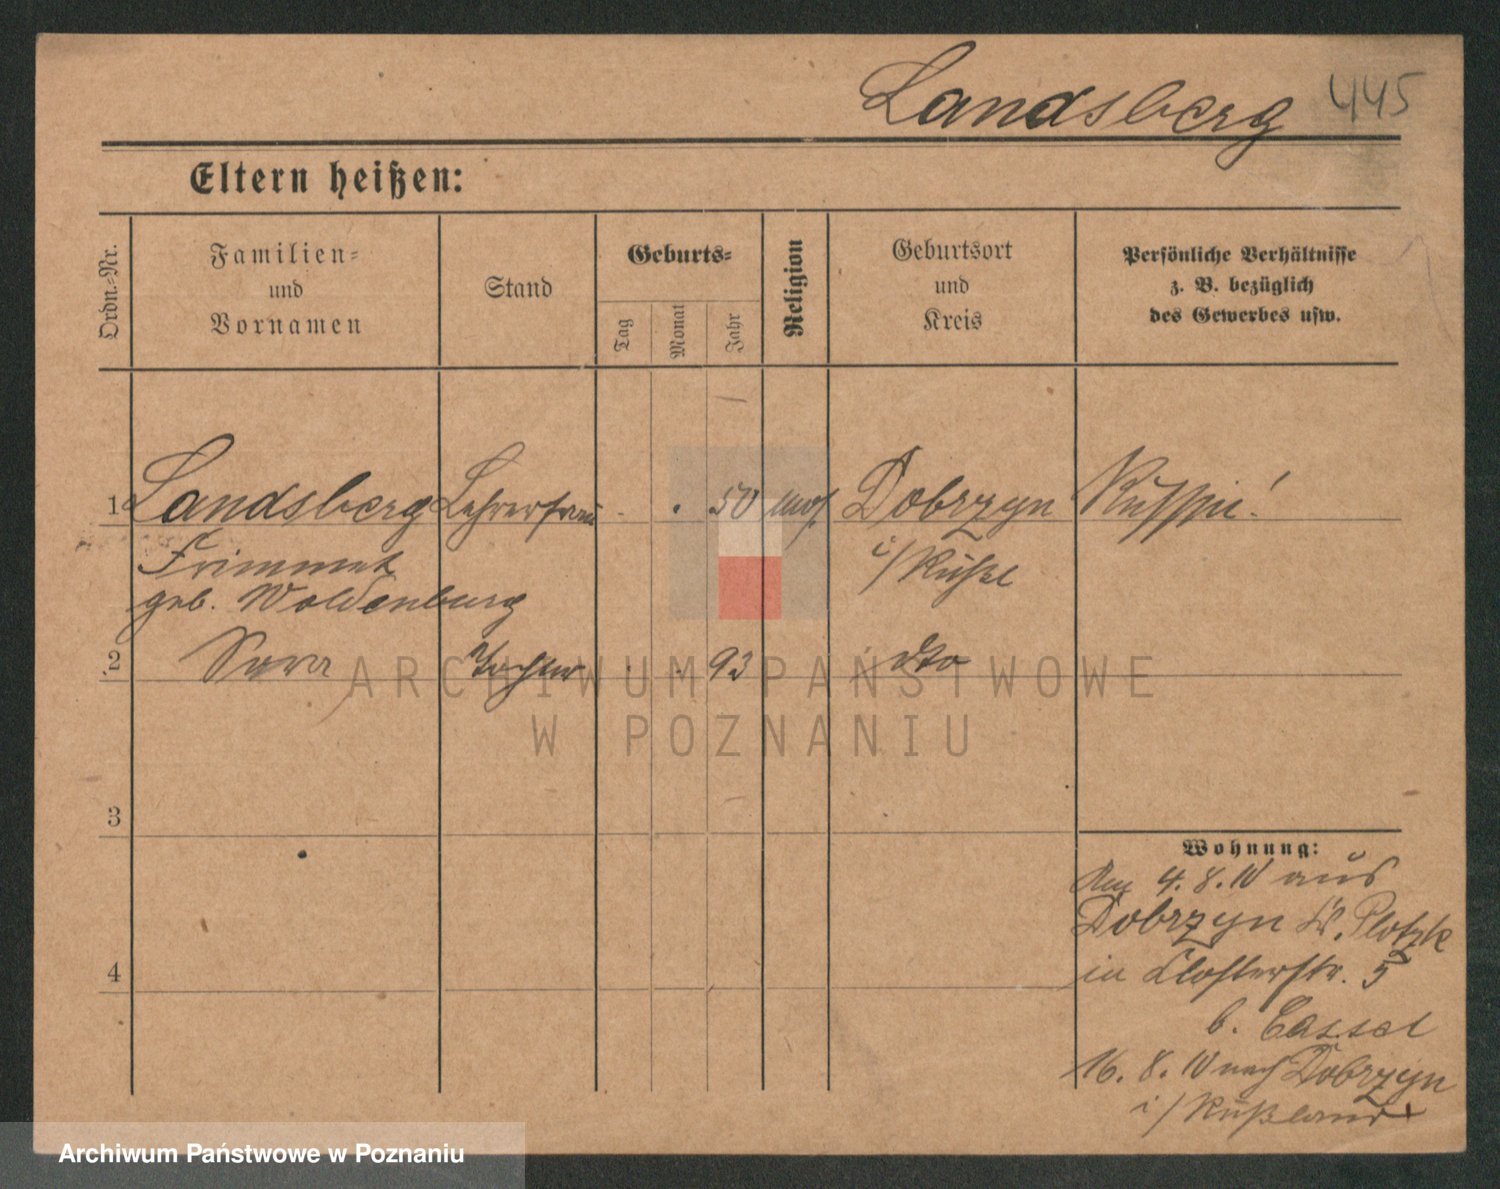 Landsberg 445
Eltern heißen:
Ordn.-Nr.
Familien-
und
Vornamen
Stand
Geburts-
Tag
Monat
Jahr
Religion
Geburtsort
und
Kreis
Persönliche Verhältnisse
z. B. bezüglich
des Gewerbes usw.
1 Landsberg Lehrerfrau - . 50 mos. Dobrzyn
Frimmet i/Rußl
geb. Woldenburg
2 Sara Tochter . . 93 dto
3
4
Wohnung:
Am 4.8.10 aus
Dobrzyn K. Plotzk
in Klosterstr. 5
b. Cassel
16.8.10 nach Dobrzyn
i/Rußland
ARCHIWUM PAŃSTWOWE
W POZNANIU
Archiwum Państwowe w Poznaniu